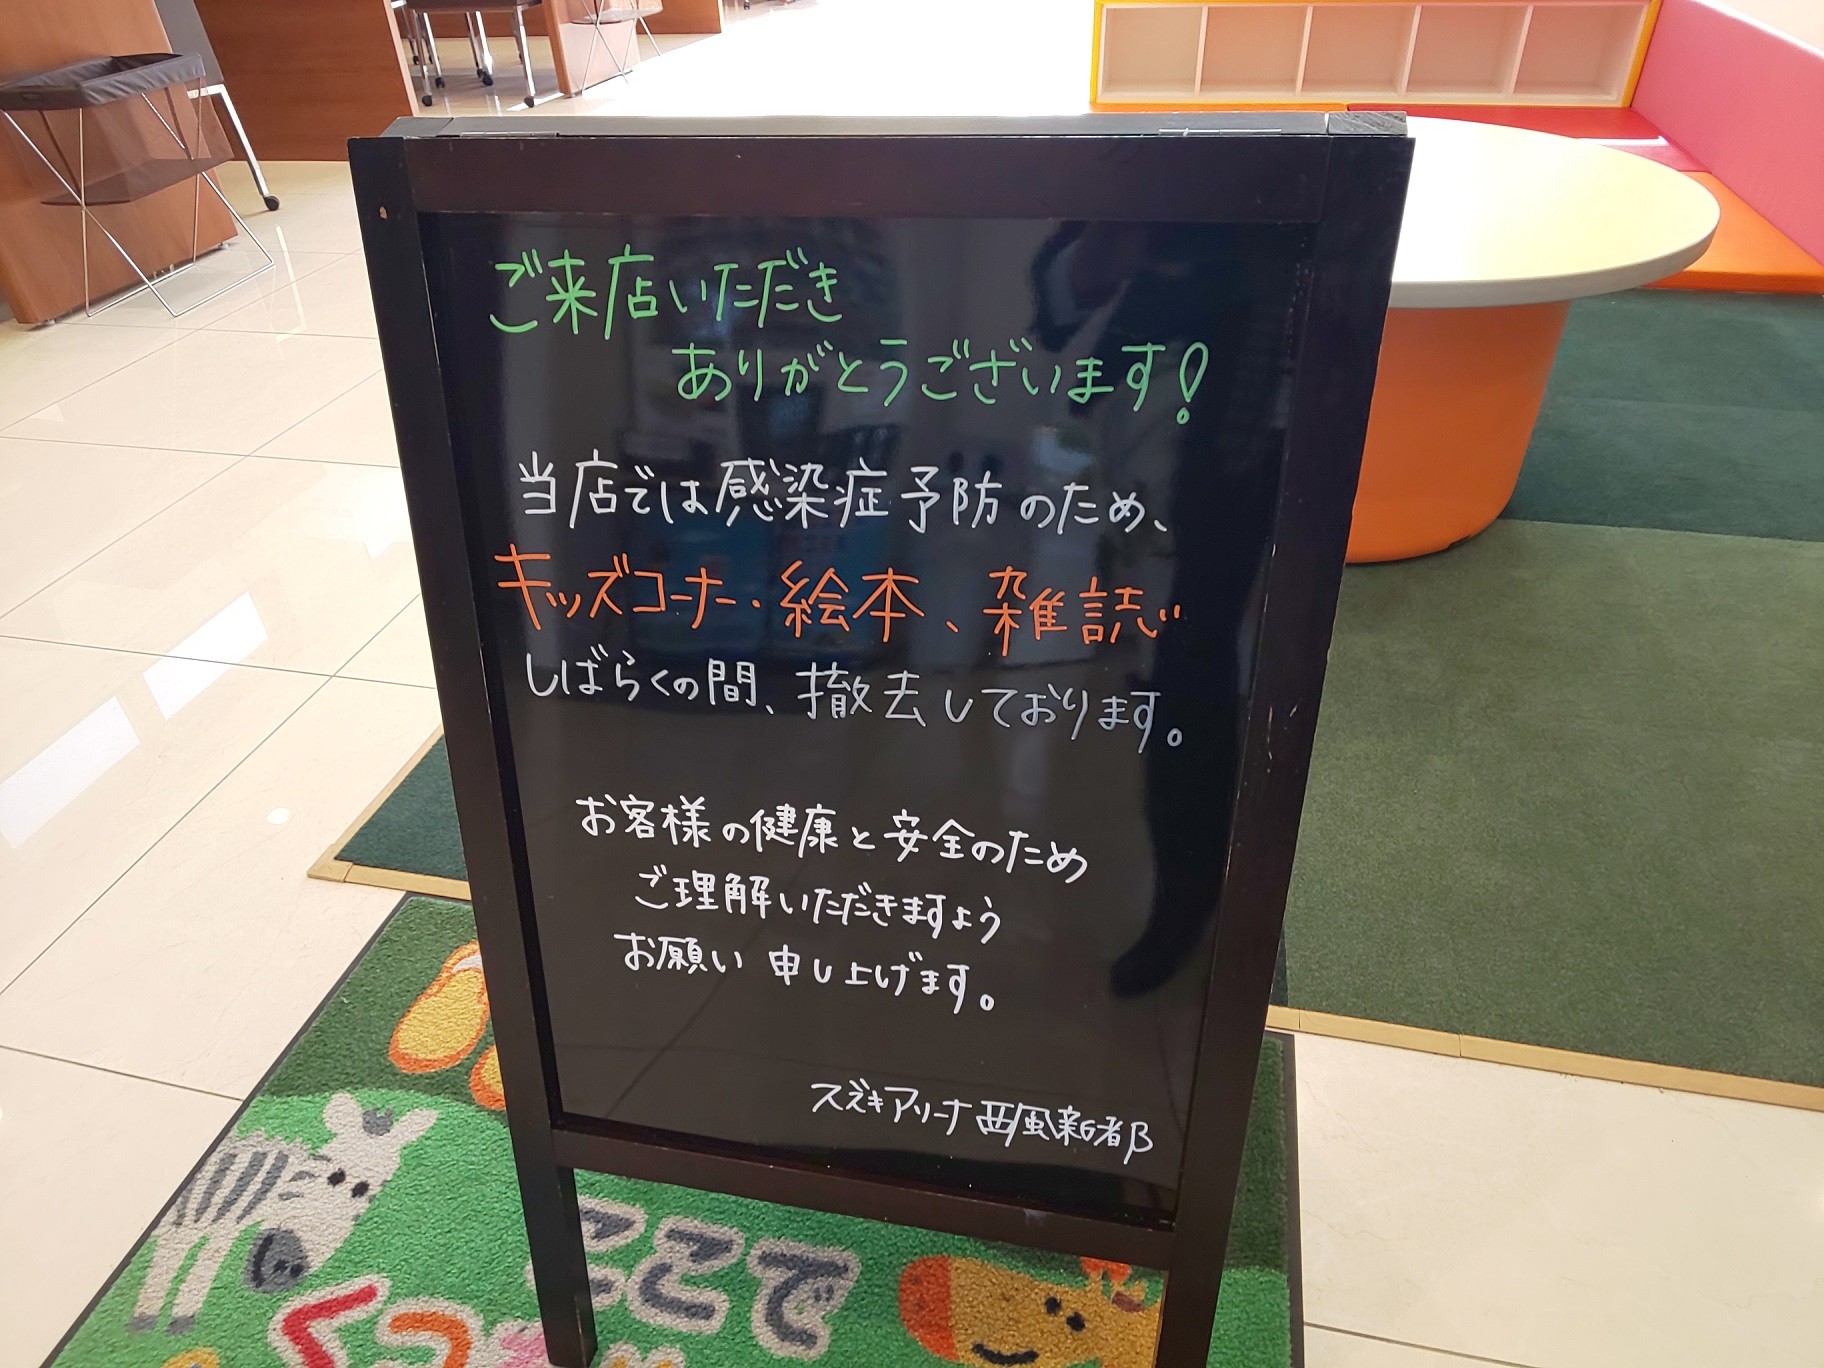 ご来店いただき
ありがとうございます!
当店では感染症予防のため、
キッズコーナー・絵本、雑誌い
しばらくの間、撤去しております。
お客様の健康と安全のため
ご理解いただきますよう
お願い申し上げます。
スズキアリーナ西風新都
ここで
くつ